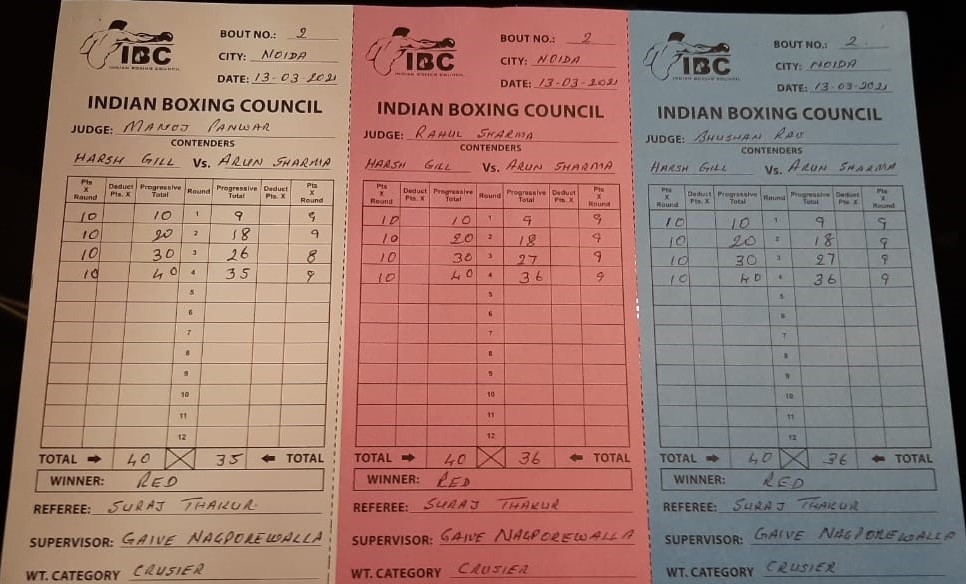 IBC
INDIAN BOXING COUNCIL
BOUT NO.: 2
CITY: NOIDA
DATE: 13-03-2021
INDIAN BOXING COUNCIL
JUDGE: MANOJ PANWAR
CONTENDERS
HARSH GILL Vs. ARUN SHARMA
Pts X Round Deduct Pts. X Progressive Total Round Progressive Total Deduct Pts. X Pts X Round
10 10 1 9 9
10 20 2 18 9
10 30 3 26 8
10 40 4 35 9
5
6
7
8
9
10
11
12
TOTAL 40 35 TOTAL
WINNER: RED
REFEREE: SURAJ THAKUR
SUPERVISOR: GAIVE NAGPOREWALLA
WT. CATEGORY CRUSIER
IBC
INDIAN BOXING COUNCIL
BOUT NO.: 2
CITY: NOIDA
DATE: 13-03-2021
INDIAN BOXING COUNCIL
JUDGE: RAHUL SHARMA
CONTENDERS
HARSH GILL Vs. ARUN SHARMA
Pts X Round Deduct Pts. X Progressive Total Round Progressive Total Deduct Pts. X Pts X Round
10 10 1 9 9
10 20 2 18 9
10 30 3 27 9
10 40 4 36 9
5
6
7
8
9
10
11
12
TOTAL 40 36 TOTAL
WINNER: RED
REFEREE: SURAJ THAKUR
SUPERVISOR: GAIVE NAGPOREWALLA
WT. CATEGORY CRUSIER
IBC
INDIAN BOXING COUNCIL
BOUT NO.: 2
CITY: NOIDA
DATE: 13-03-2021
INDIAN BOXING COUNCIL
JUDGE: BHUSHAN RAO
CONTENDERS
HARSH GILL Vs. ARUN SHARMA
Pts X Round Deduct Pts. X Progressive Total Round Progressive Total Deduct Pts. X Pts X Round
10 10 1 9 9
10 20 2 18 9
10 30 3 27 9
10 40 4 36 9
5
6
7
8
9
10
11
12
TOTAL 40 36 TOTAL
WINNER: RED
REFEREE: SURAJ THAKUR
SUPERVISOR: GAIVE NAGPOREWALLA
WT. CATEGORY CRUSIER